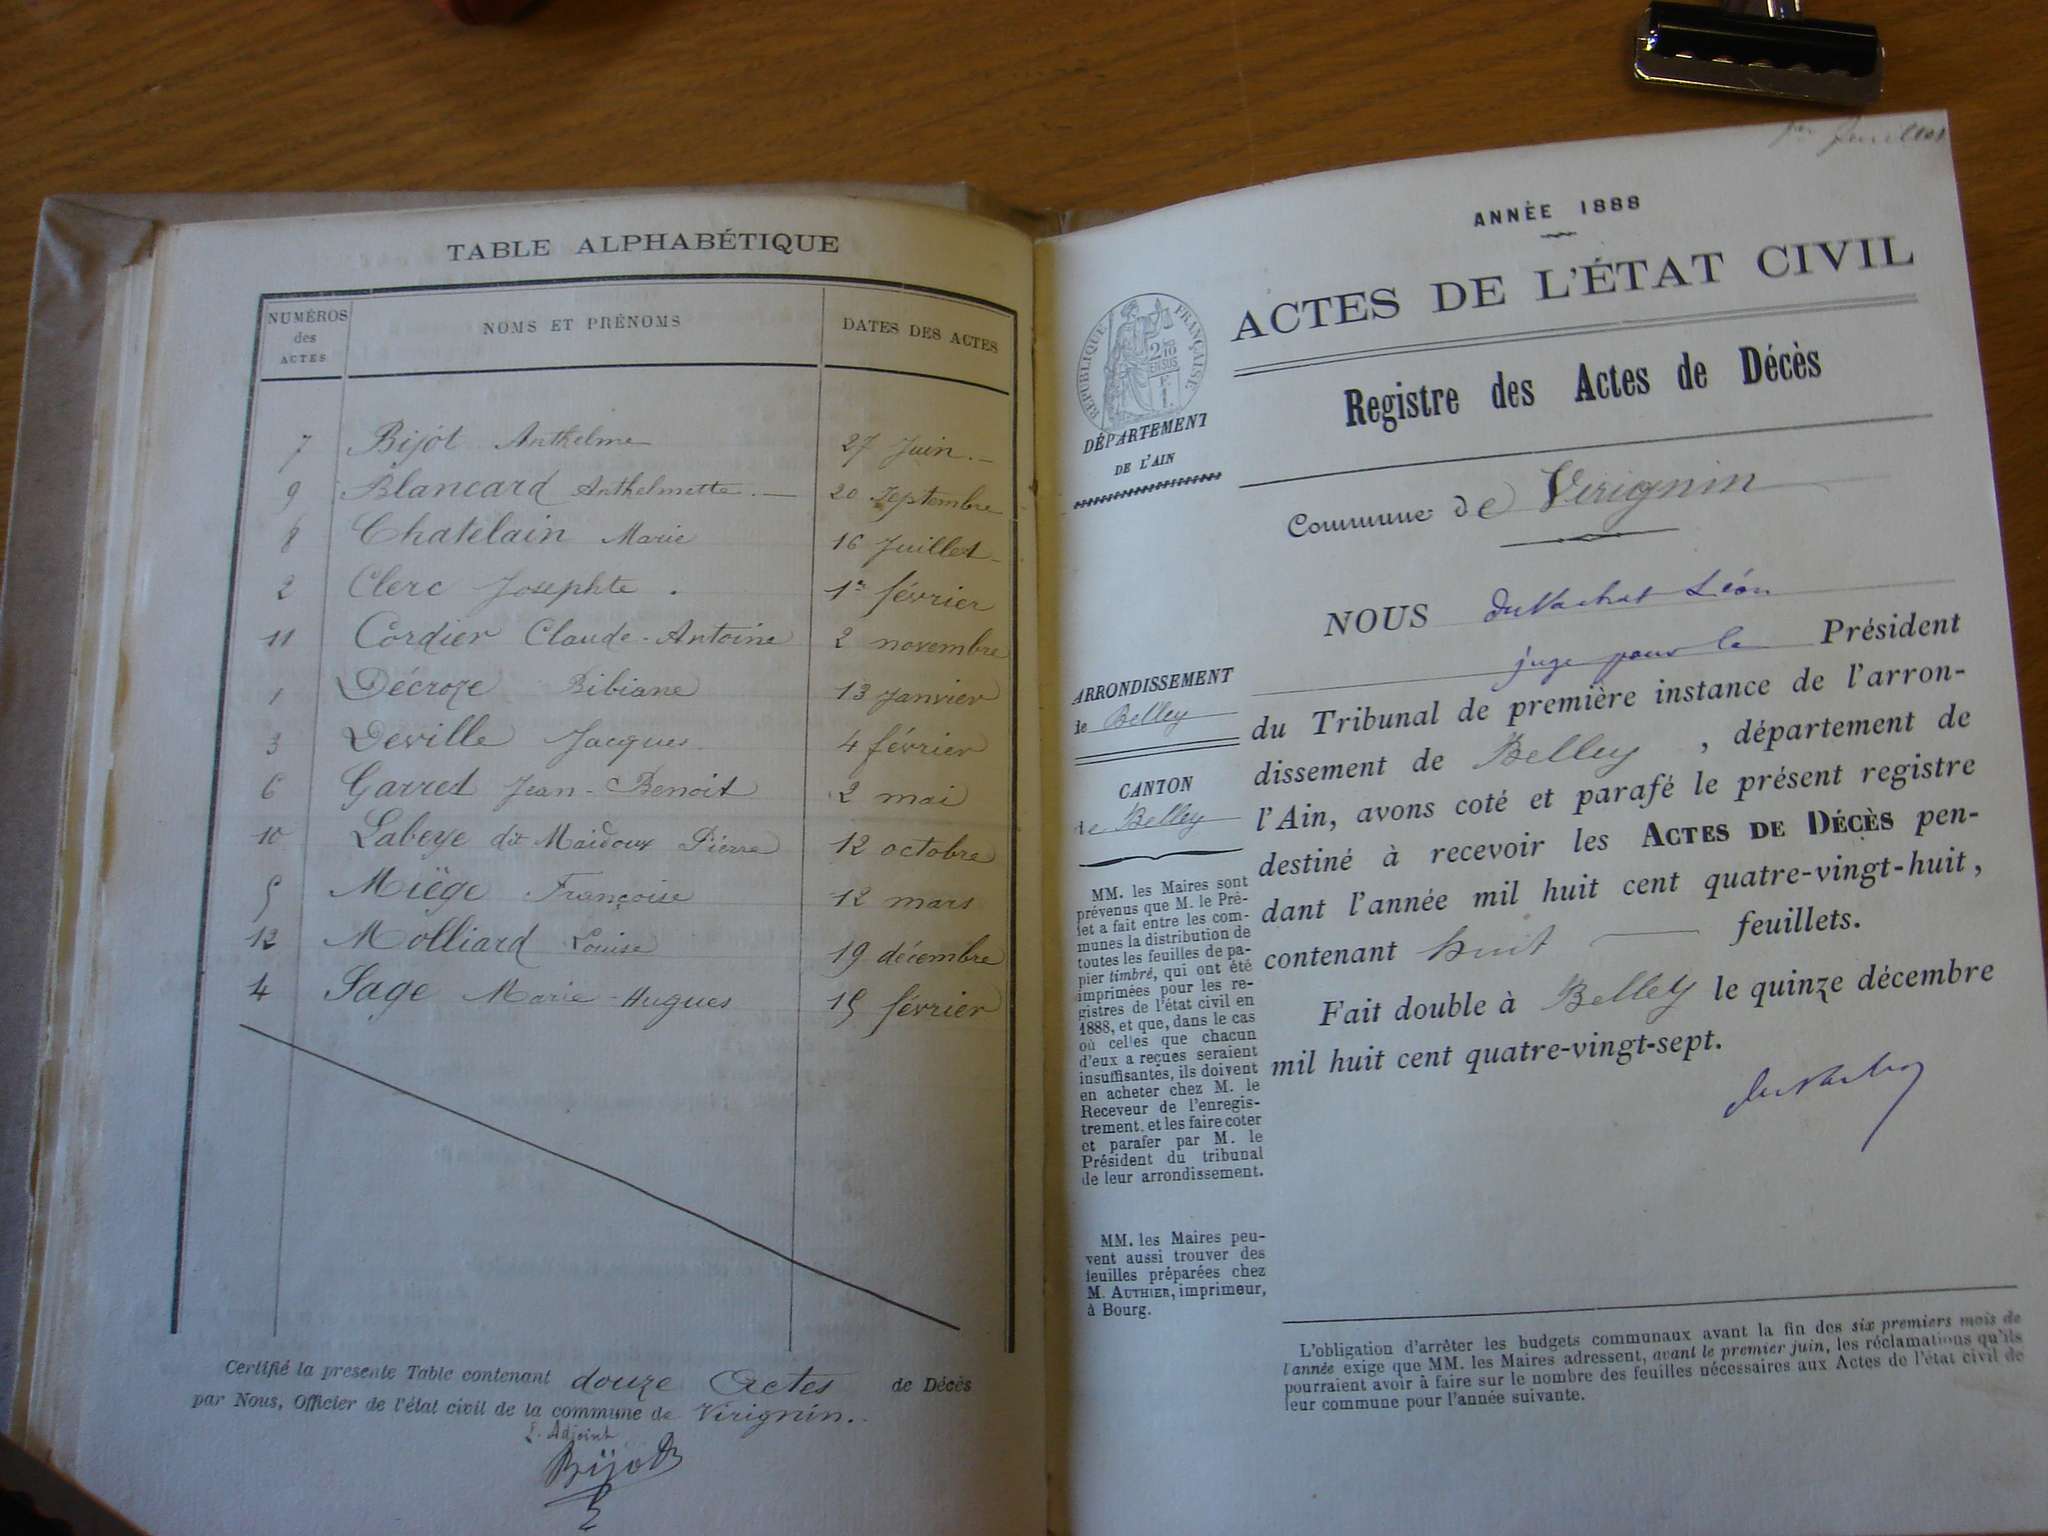 TABLE ALPHABÉTIQUE
NUMÉROS des ACTES
NOMS ET PRÉNOMS
DATES DES ACTES
7 Bijot Anthelme 27 Juin.
9 Blancard Anthelmette. 20 Septembre
8 Chatelain Marie 16 Juillet
2 Clerc Josephte. 1er février
11 Cordier Claude-Antoine 2 novembre
1 Décroze Bibiane 13 Janvier
3 Deville Jacques 4 février
6 Garret Jean-Benoit 2 mai
10 Labeye dit Maidoux Pierre 12 octobre
5 Miège Françoise 12 mars
12 Molliard Louise 19 décembre
4 Sage Marie-Hugues 15 février
Certifié la présente Table contenant douze Actes de Décès
par Nous, Officier de l'état civil de la commune de Virignin.
L'Adjoint
Bijot
ANNÉE 1888
ACTES DE L'ÉTAT CIVIL
RÉPUBLIQUE FRANÇAISE
2/10 EN SUS
F. 1.
DÉPARTEMENT
DE L'AIN
Registre des Actes de Décès
Commune de Virignin
ARRONDISSEMENT
de Belley
CANTON
de Belley
MM. les Maires sont
prévenus que M. le Pré-
fet a fait entre les com-
munes la distribution de
toutes les feuilles de pa-
pier timbré, qui ont été
imprimées pour les re-
gistres de l'état civil en
1888, et que, dans le cas
où celles que chacun
d'eux a reçues seraient
insuffisantes, ils doivent
en acheter chez M. le
Receveur de l'enregis-
trement, et les faire coter
et parafer par M. le
Président du tribunal
de leur arrondissement.
MM. les Maires peu-
vent aussi trouver des
feuilles préparées chez
M. AUTHIER, imprimeur,
à Bourg.
NOUS Léon
juge pour le Président
du Tribunal de première instance de l'arron-
dissement de Belley, département de
l'Ain, avons coté et parafé le présent registre
destiné à recevoir les ACTES DE DÉCÈS pen-
dant l'année mil huit cent quatre-vingt-huit,
contenant huit feuillets.
Fait double à Belley le quinze décembre
mil huit cent quatre-vingt-sept.
L'obligation d'arrêter les budgets communaux avant la fin des six premiers mois de
l'année exige que MM. les Maires adressent, avant le premier juin, les réclamations qu'ils
pourraient avoir à faire sur le nombre des feuilles nécessaires aux Actes de l'état civil de
leur commune pour l'année suivante.